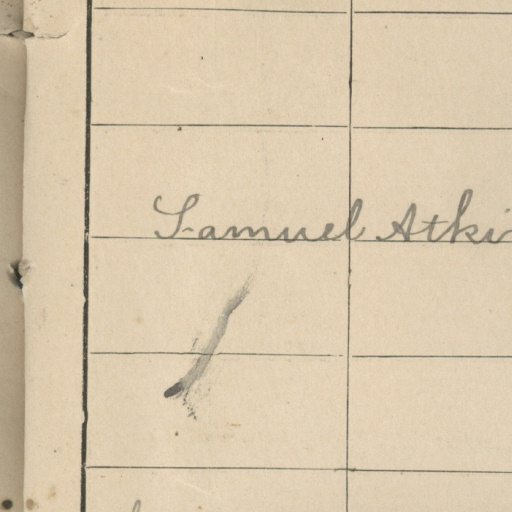 Samuel Atki